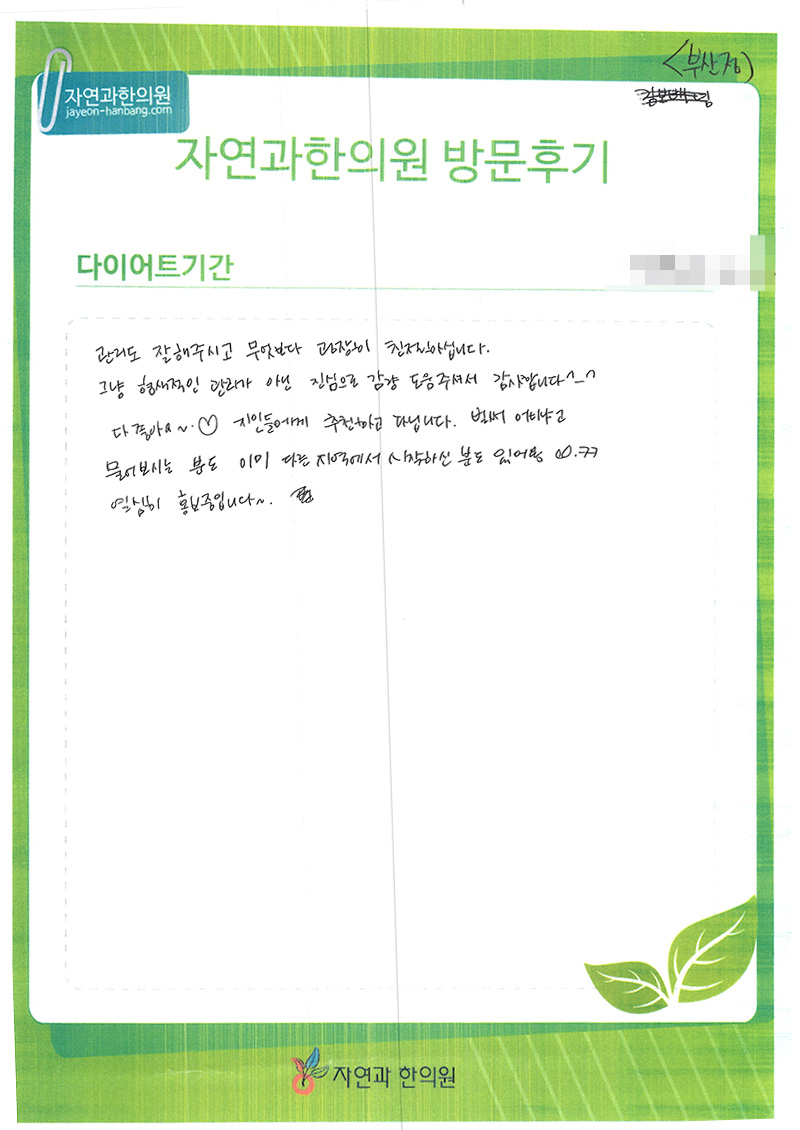 <부산점>
자연과한의원
jayeon-hanbang.com
자연과한의원 방문후기
다이어트기간
관리도 잘해주시고 무엇보다 굉장히 친절하십니다.
그냥 형색적인 관리가 아닌 진심으로 감량 도움주셔서 감사합니다^_^
다 좋아요~.♡ 지인들에게 추천하고 다닙니다. 벌써 어떠냐고
물어보시는 분도 이미 다른 지역에서 시작하신 분도 있어용 ㅋㅋ
열심히 홍보중입니다~.
자연과 한의원